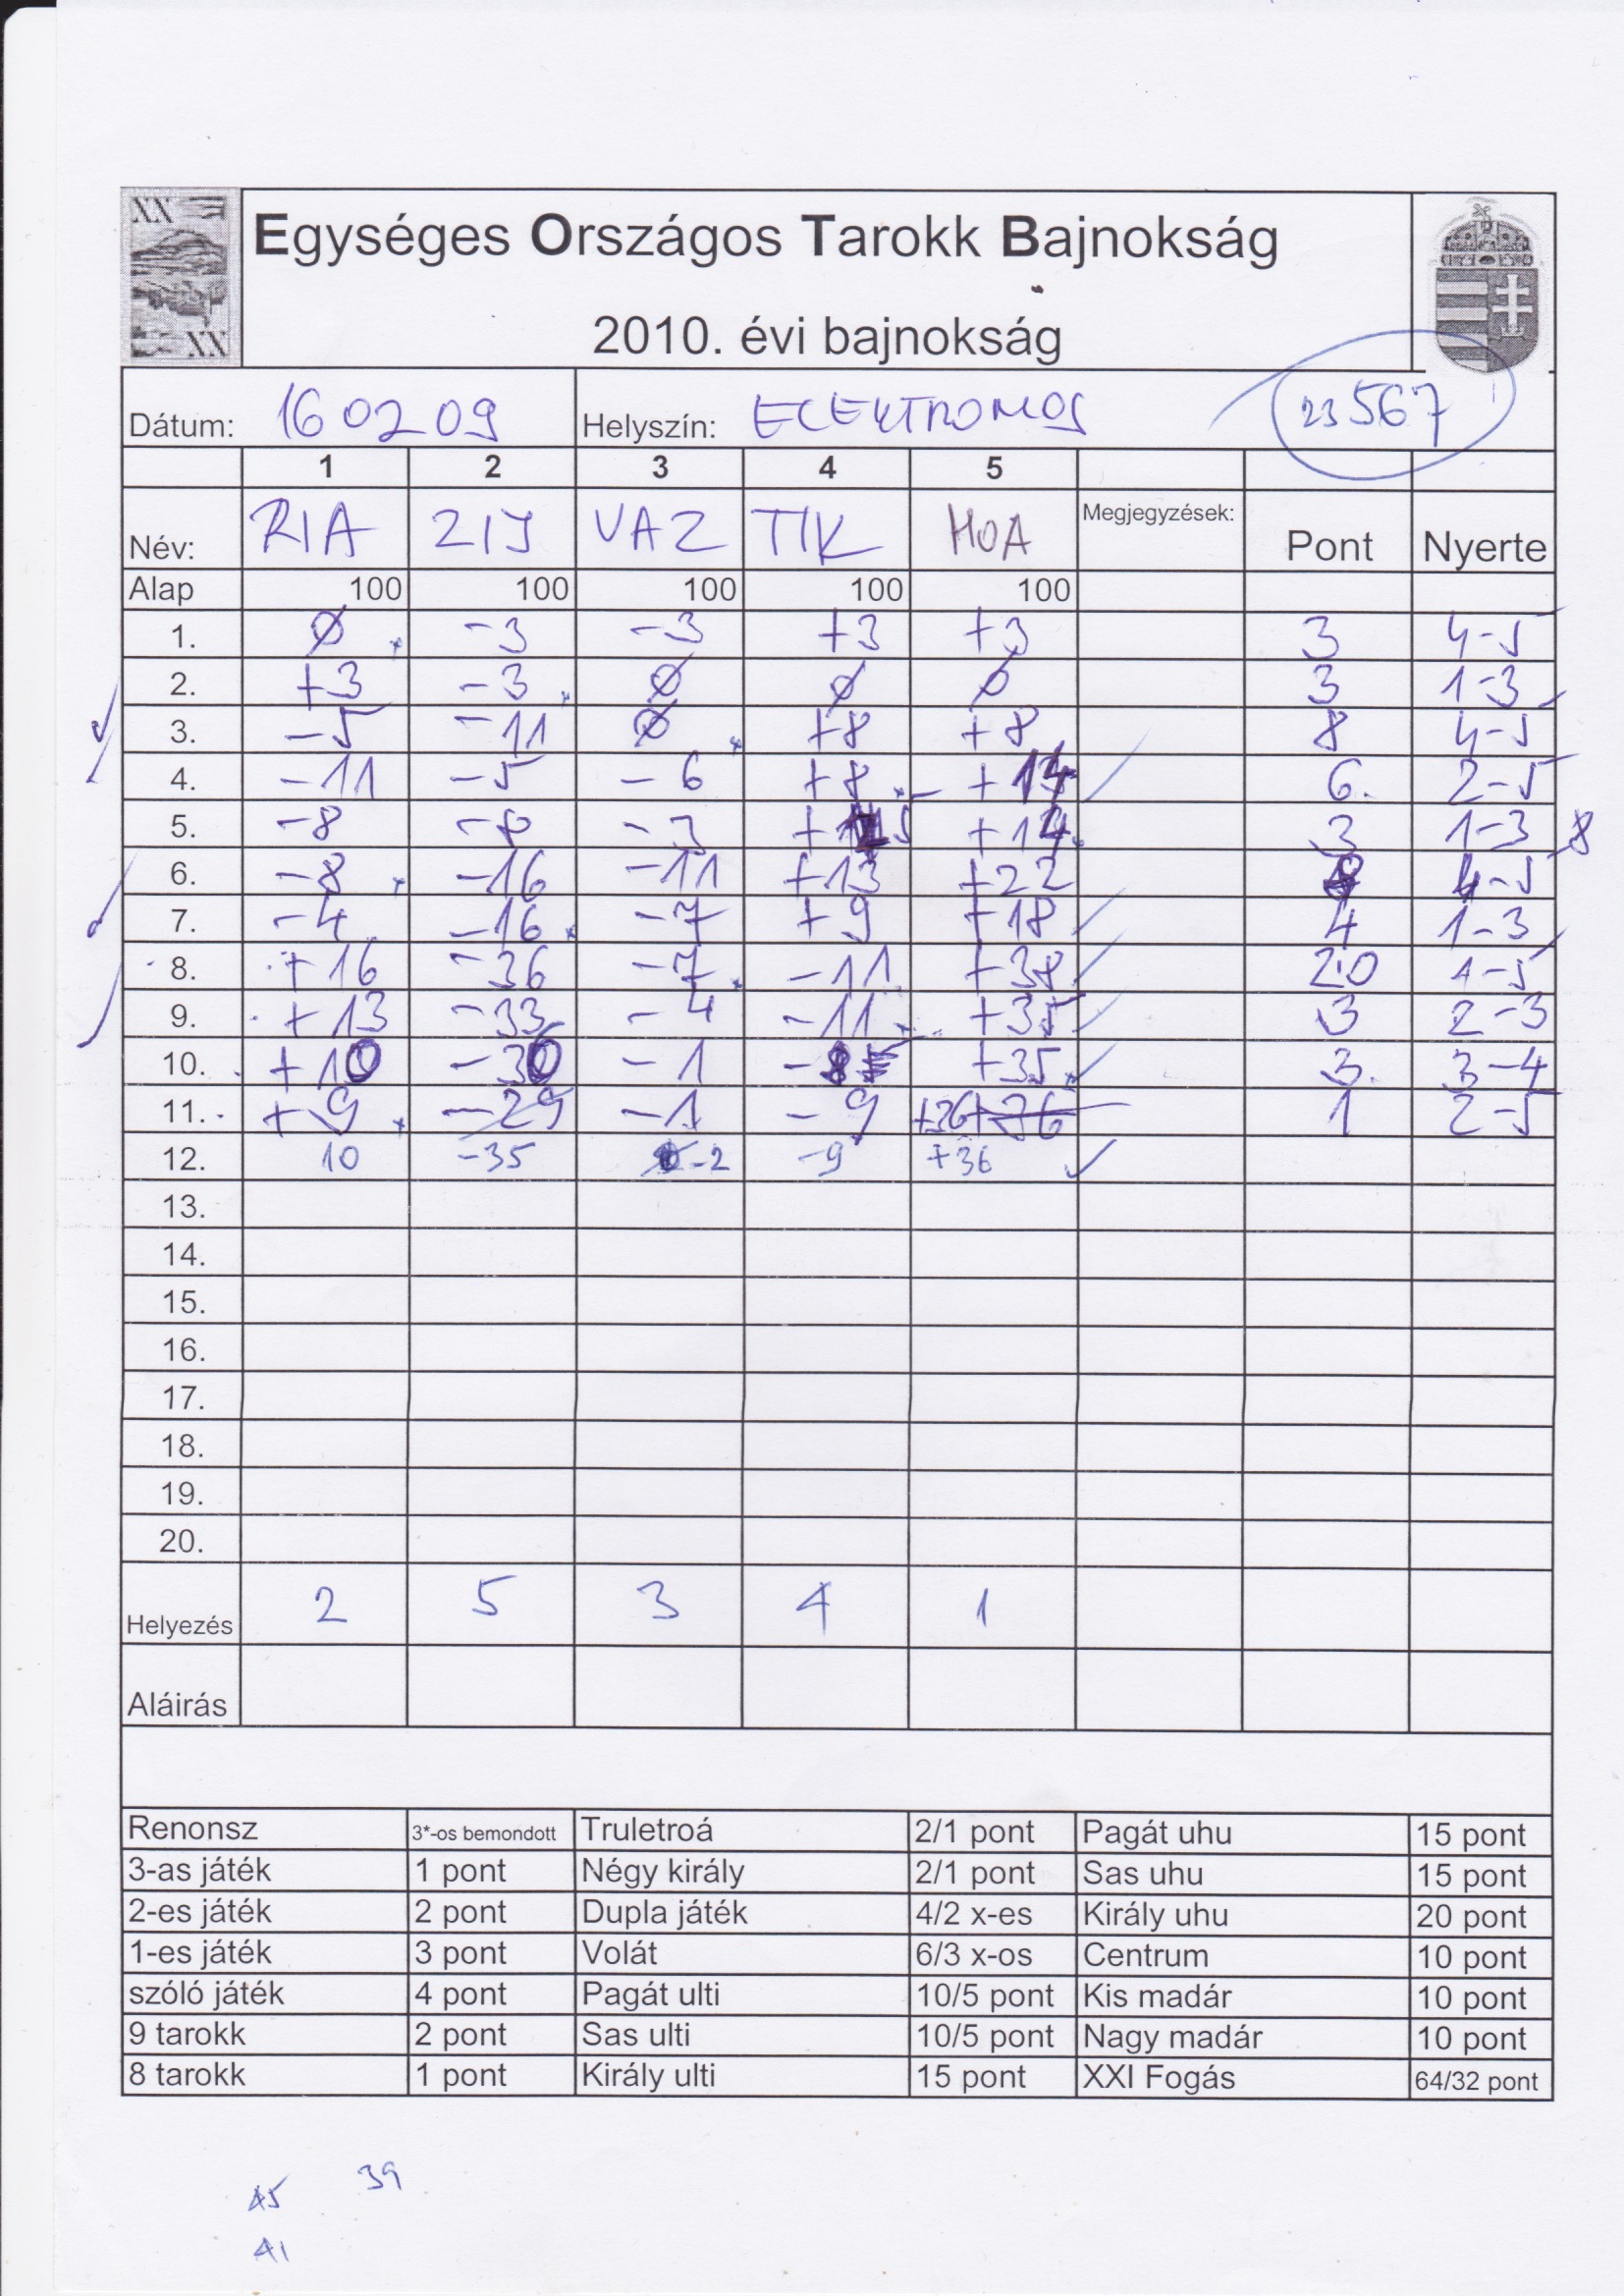 XX
XX
Egységes Országos Tarokk Bajnokság
2010. évi bajnokság
Dátum: 160209 Helyszín: ELEKTROMOS 23567
1 2 3 4 5
Név: RIA ZIJ VAZ TIK HOA Megjegyzések: Pont Nyerte
Alap 100 100 100 100 100
1. Ø -3 -3 +3 +3 3 4-5
2. +3 -3 Ø Ø Ø 3 1-3
3. -5 -11 Ø +8 +8 8 4-5
4. -11 -5 -6 +8 +14 6. 2-5
5. -8 -8 -3 +14 3 1-3 8
6. -8 -16 -11 +13 +22 8 4-5
7. -4 -16 -7 +9 +18 4 1-3
8. +16 -36 -7 -11 +38 20 1-5
9. +13 -33 -4 -11 +35 3 2-3
10. +10 -30 -1 -8 +35 3. 3-4
11. +9 -29 -1 -9 +36 +36 1 2-5
12. 10 -35 -2 -9 +36
13.
14.
15.
16.
17.
18.
19.
20.
Helyezés 2 5 3 4 1
Aláirás
Renonsz 3*-os bemondott Truletroá 2/1 pont Pagát uhu 15 pont
3-as játék 1 pont Négy király 2/1 pont Sas uhu 15 pont
2-es játék 2 pont Dupla játék 4/2 x-es Király uhu 20 pont
1-es játék 3 pont Volát 6/3 x-os Centrum 10 pont
szóló játék 4 pont Pagát ulti 10/5 pont Kis madár 10 pont
9 tarokk 2 pont Sas ulti 10/5 pont Nagy madár 10 pont
8 tarokk 1 pont Király ulti 15 pont XXI Fogás 64/32 pont
45 39
41